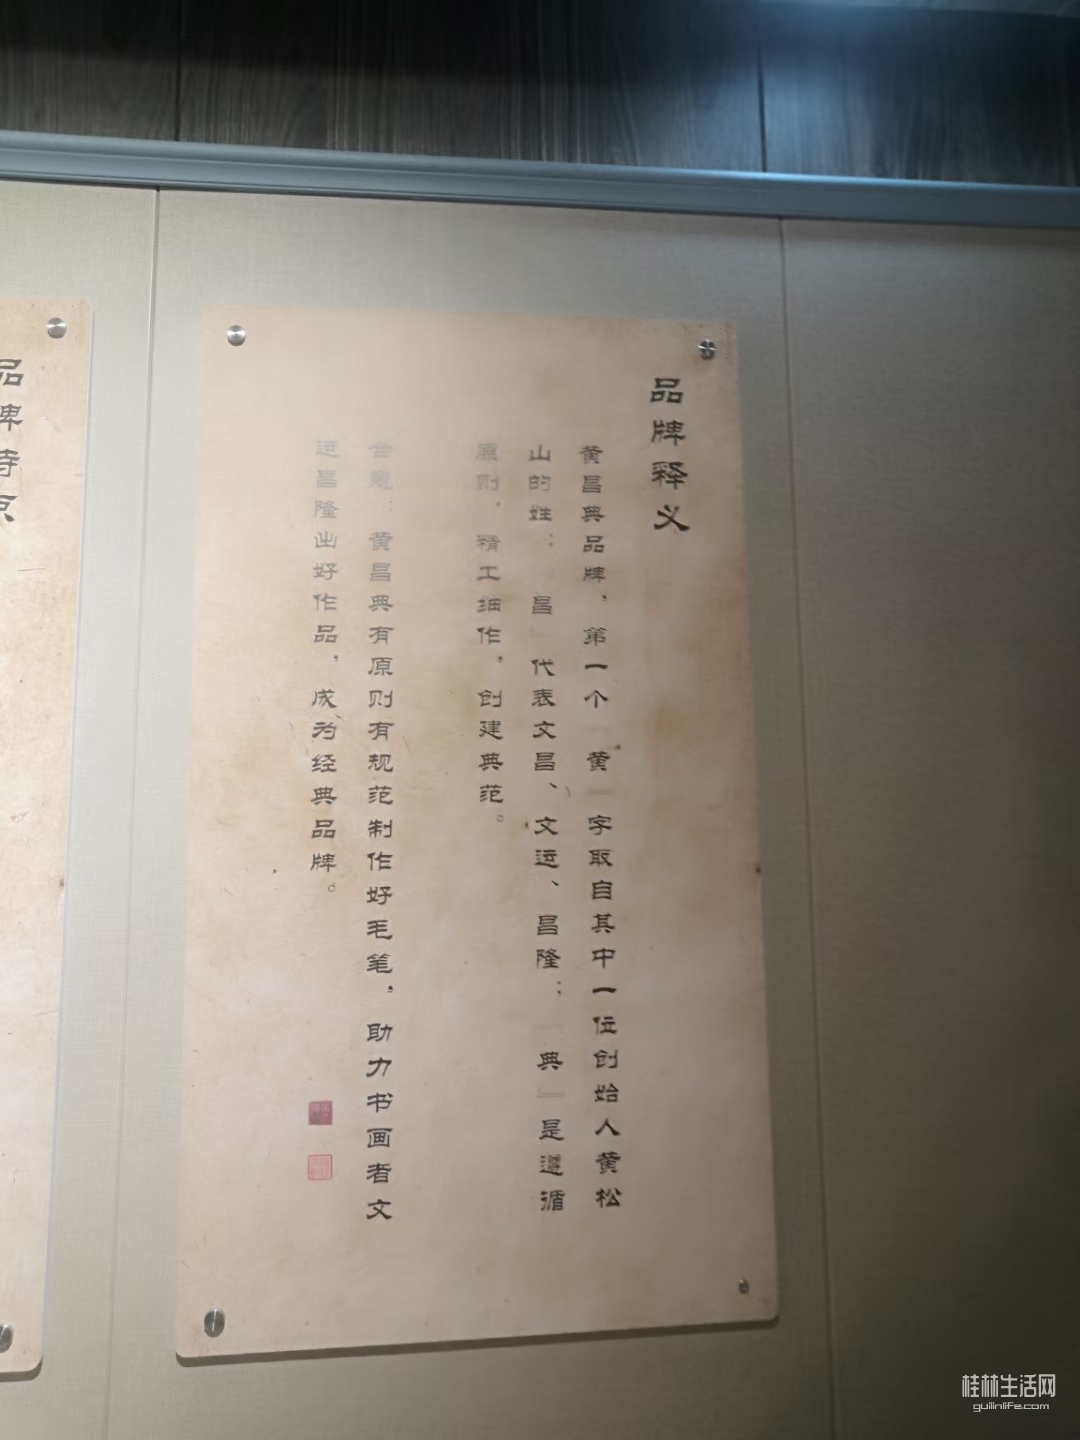 品牌释义
黄昌典品牌，第一个『黄』字取自其中一位创始人黄松
山的姓；『昌』代表文昌、文运、昌隆；『典』是遵循
原则，精工细作，创建典范。
黄昌典有原则有规范制作好毛笔，助力书画者文
运昌隆出好作品，成为经典品牌。
品牌特点
桂林生活网
guilinlife.com